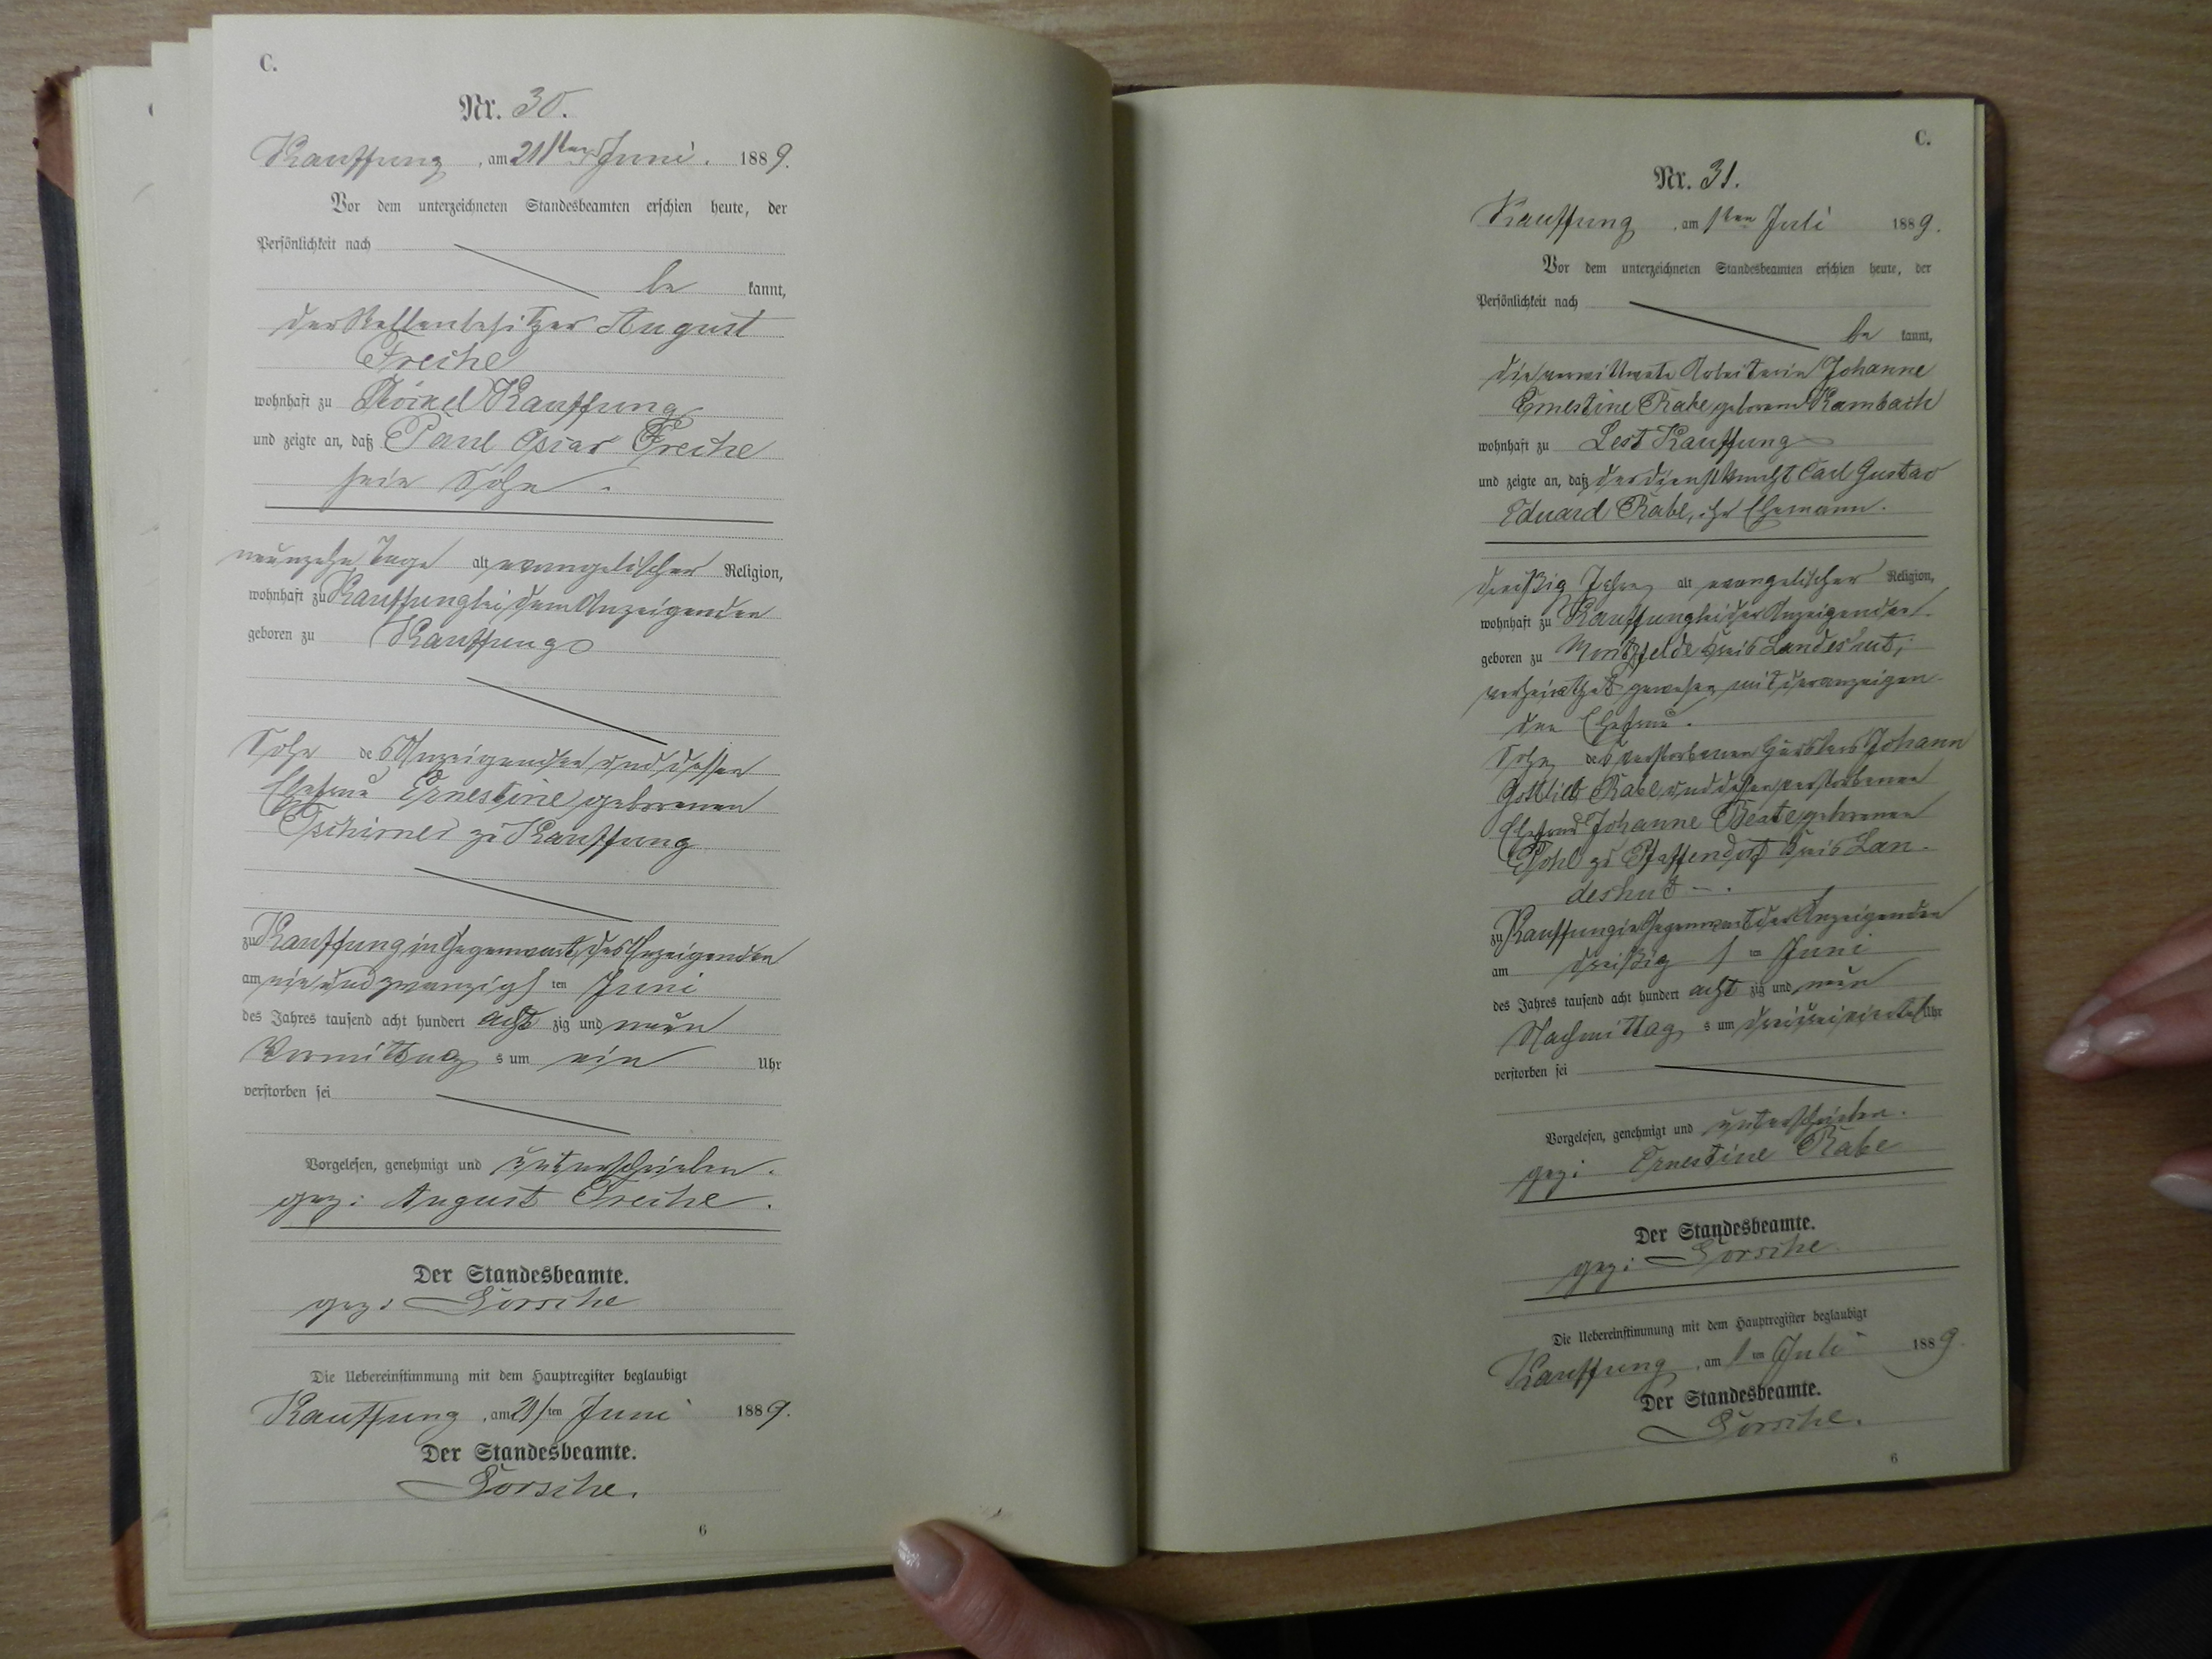 C.
Nr. 30.
Kauffung, am 21ten Juni. 1889.
Vor dem unterzeichneten Standesbeamten erschien heute, der
Persönlichkeit nach
be kannt,
der Stellenbesitzer August
Freche
wohnhaft zu Röversdorf Kauffung
und zeigte an, daß Paul Oscar Freche
sein Sohn.
neunzehn Tage alt evangelischer Religion,
wohnhaft zu Kauffung bei dem Anzeigenden
geboren zu Kauffung
Sohn des Anzeigenden und dessen
Ehefrau Ernestine geborenen
Tschirner zu Kauffung
zu Kauffung in Gegenwart des Anzeigenden
am ein und zwanzigsten Juni
des Jahres tausend acht hundert acht zig und neun
Vormittags um ein Uhr
verstorben sei
Vorgelesen, genehmigt und unterschrieben.
gez: August Freche.
Der Standesbeamte.
gez:
Die Uebereinstimmung mit dem Hauptregister beglaubigt
Kauffung, am 21ten Juni 1889.
Der Standesbeamte.
6
C.
Nr. 31.
Kauffung, am 1ten Juli 1889.
Vor dem unterzeichneten Standesbeamten erschien heute, der
Persönlichkeit nach
be kannt,
die verwittwete Arbeiterin Johanne
Ernestine Rabe geborene Rambach
wohnhaft zu Lest Kauffung
und zeigte an, daß der Dienstknecht Carl Gustav
Eduard Rabe, ihr Ehemann.
dreißig Jahre alt evangelischer Religion,
wohnhaft zu Kauffung bei der Anzeigenden.
geboren zu Moritzfelde Kreis Landeshut;
verheirathet gewesen mit der anzeigen
den Ehefrau.
Sohn des verstorbenen Häuslers Johann
Gottlieb Rabe und dessen verstorbenen
Ehefrau Johanne Beate geborenen
Pohl zu Pfaffendorf Kreis Lan-
deshut.
zu Kauffung in Gegenwart der Anzeigenden
am dreißigsten Juni
des Jahres tausend acht hundert acht zig und neun
Nachmittags um dreiviertel Uhr
verstorben sei
Vorgelesen, genehmigt und unterschrieben.
gez: Ernestine Rabe
Der Standesbeamte.
gez:
Die Uebereinstimmung mit dem Hauptregister beglaubigt
Kauffung, am 1ten Juli 1889.
Der Standesbeamte.
6